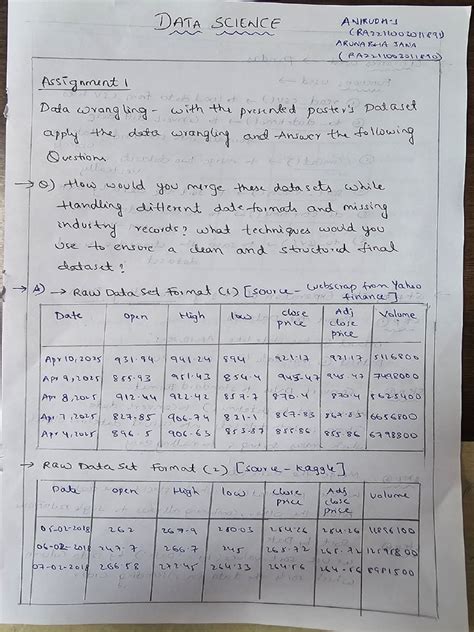 DATA SCIENCE
ANIRUDH-J
(RA2211003011891)
ARUNABHA JANA
(RA2211003011890)
Assignment 1
Data wrangling - with the presented poster's Dataset
apply the data wrangling and Answer the following
Questions.
→ Q) How would you merge these datasets while
Handling different date formats and missing
industry records? what techniques would you
use to ensure a clean and structured final
dataset?
→ A) → RAW DATA SET FORMAT (1) [source - webscrap from Yahoo
finance]
Date open High low close price Adj close price Volume
Apr 10, 2025 931.94 941.24 894 921.17 921.17 5116800
Apr 9, 2025 855.93 951.43 854.4 945.47 945.47 7498000
Apr 8, 2025 912.44 922.42 857.7 870.4 870.4 5623400
Apr 7, 2025 827.85 906.74 867.83 6656800
Apr 4, 2025 896.5 906.63 853.57 855.86 855.86 6798800
→ RAW DATA SET FORMAT (2) [source - Kaggle]
Date open High low close price Adj close price volume
05-02-2018 262 267.9 250.03 254.26 254.26 11896100
06-02-2018 247.7 266.7 245 265.72 265.72 12595800
07-02-2018 266.58 272.45 264.33 264.56 264.56 8981500